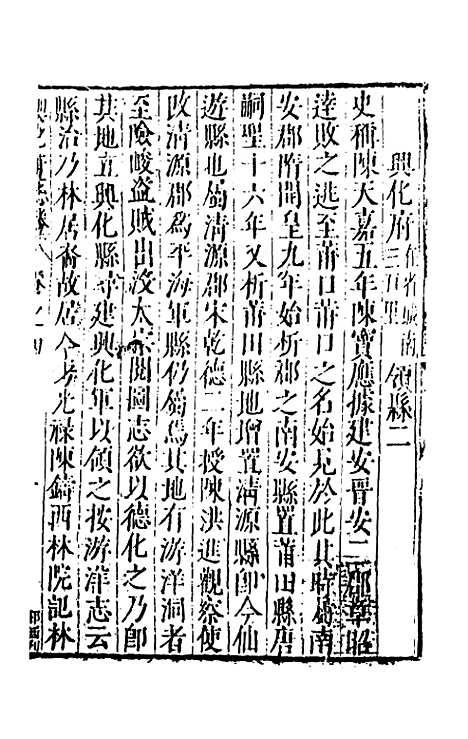 興化府在省城南三百里領縣二
史稱陳天嘉五年陳寶應據建安晉安二郡章昭
達敗之逃至莆口莆口之名始見於此其時屬南
安郡隋開皇九年始析郡之南安縣置莆田縣唐
嗣聖十六年又析莆田縣地增置清源縣卽今仙
遊縣也屬清源郡宋乾德二年授陳洪進觀察使
改清源郡爲平海軍縣仍屬焉其地有游洋洞者
至險峻盗賊出沒太宗閱圖志欲以德化之乃卽
其地立興化縣幷建興化軍以領之按游洋志云
縣治乃林居裔故居今考光禄陳鑄西林院記林